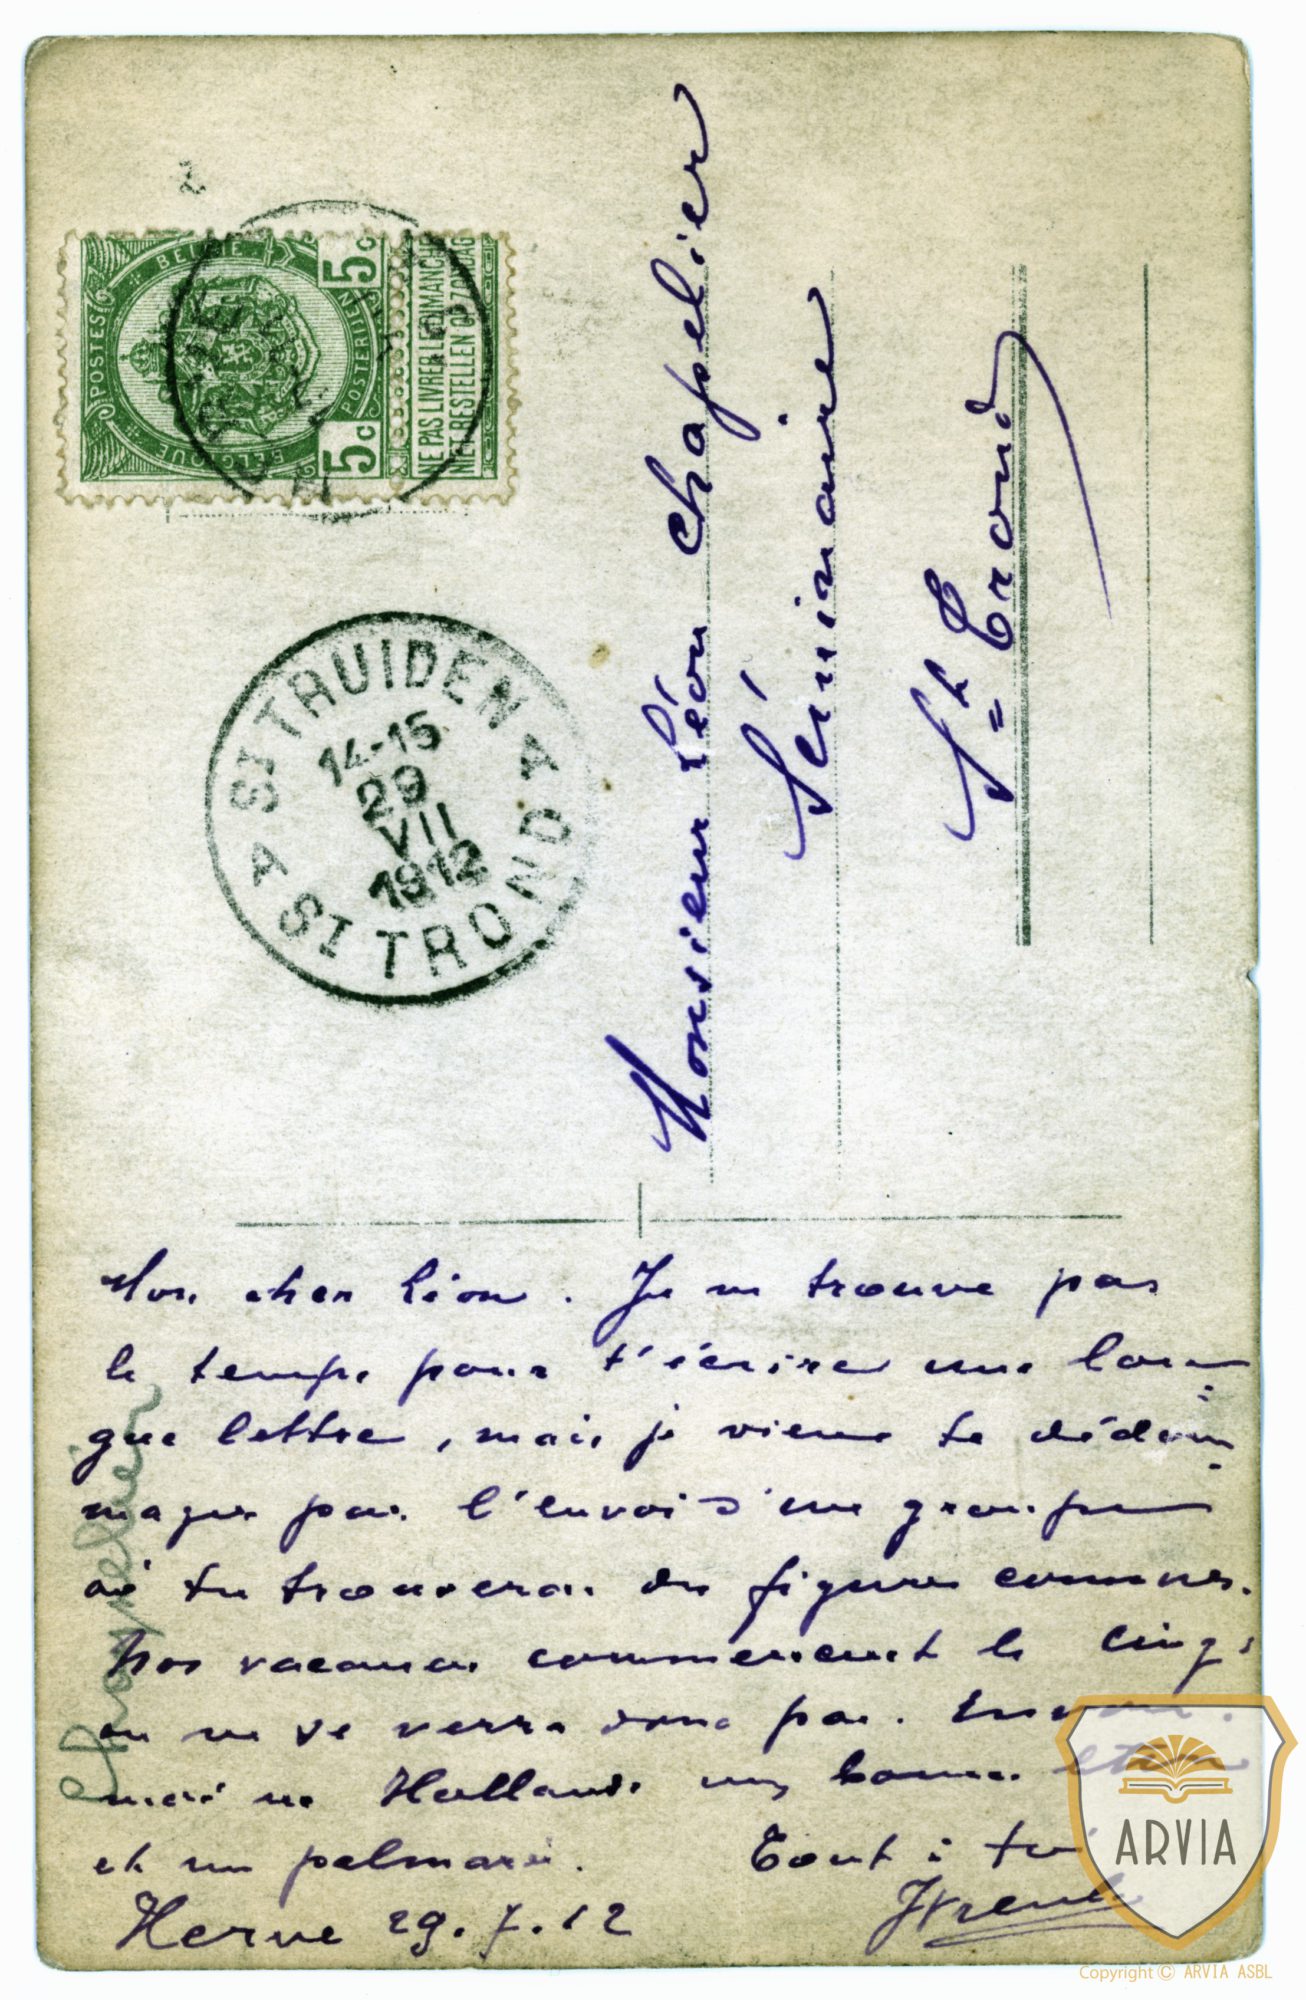 BELGIË
POSTES
POSTERIJEN
BELGIQUE
5c
5c
NE PAS LIVRER LE DIMANCHE
NIET BESTELLEN OP ZONDAG
ST TRUIDEN
14-15
29
VII
1912
ST TROND
Monsieur Léon Chapelier
Séminaire
St Trond
Mon cher Léon. Je ne trouve pas
le temps pour t'écrire une lon-
gue lettre, mais je viens te dédom
mager par l'envoi d'un groupe
où tu trouveras des figures connues.
Nos vacances commencent le cinq;
on ne se verra donc pas.
moi en Hollande
et un palmarès. Tout à toi
Herve 29.7.12
Chapelier
ARVIA
Copyright © ARVIA ASBL